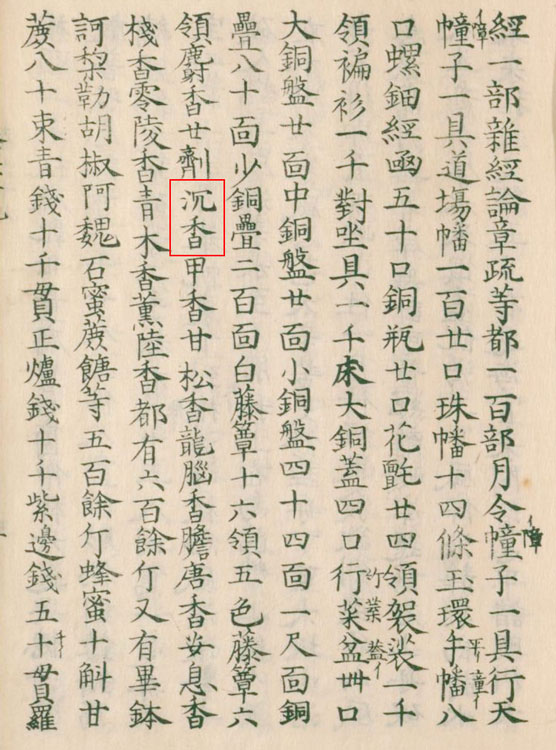 經一部雜經論章疏等都一百部月令幢子一具行天
幢子一具道場幡一百廿口珠幡十四條玉環手幡八
口螺鈿經凾五十口銅瓶廿口花氈廿四領袈裟一千
領褊衫一千對坐具一千床大銅蓋四口行菜盆卌口
大銅盤廿面中銅盤廿面小銅盤四十四面一尺面銅
疊八十面少銅疊二百面白藤簟十六領五色藤簟六
領麝香廿劑沉香甲香甘松香龍腦香膽唐香安息香
棧香零陵香青木香薰陸香都有六百餘斤又有畢鉢
訶棃勒胡椒阿魏石蜜蔗餹等五百餘斤蜂蜜十斛甘
蔗八十束青錢十千貫正爐錢十千紫邊錢五十貫羅